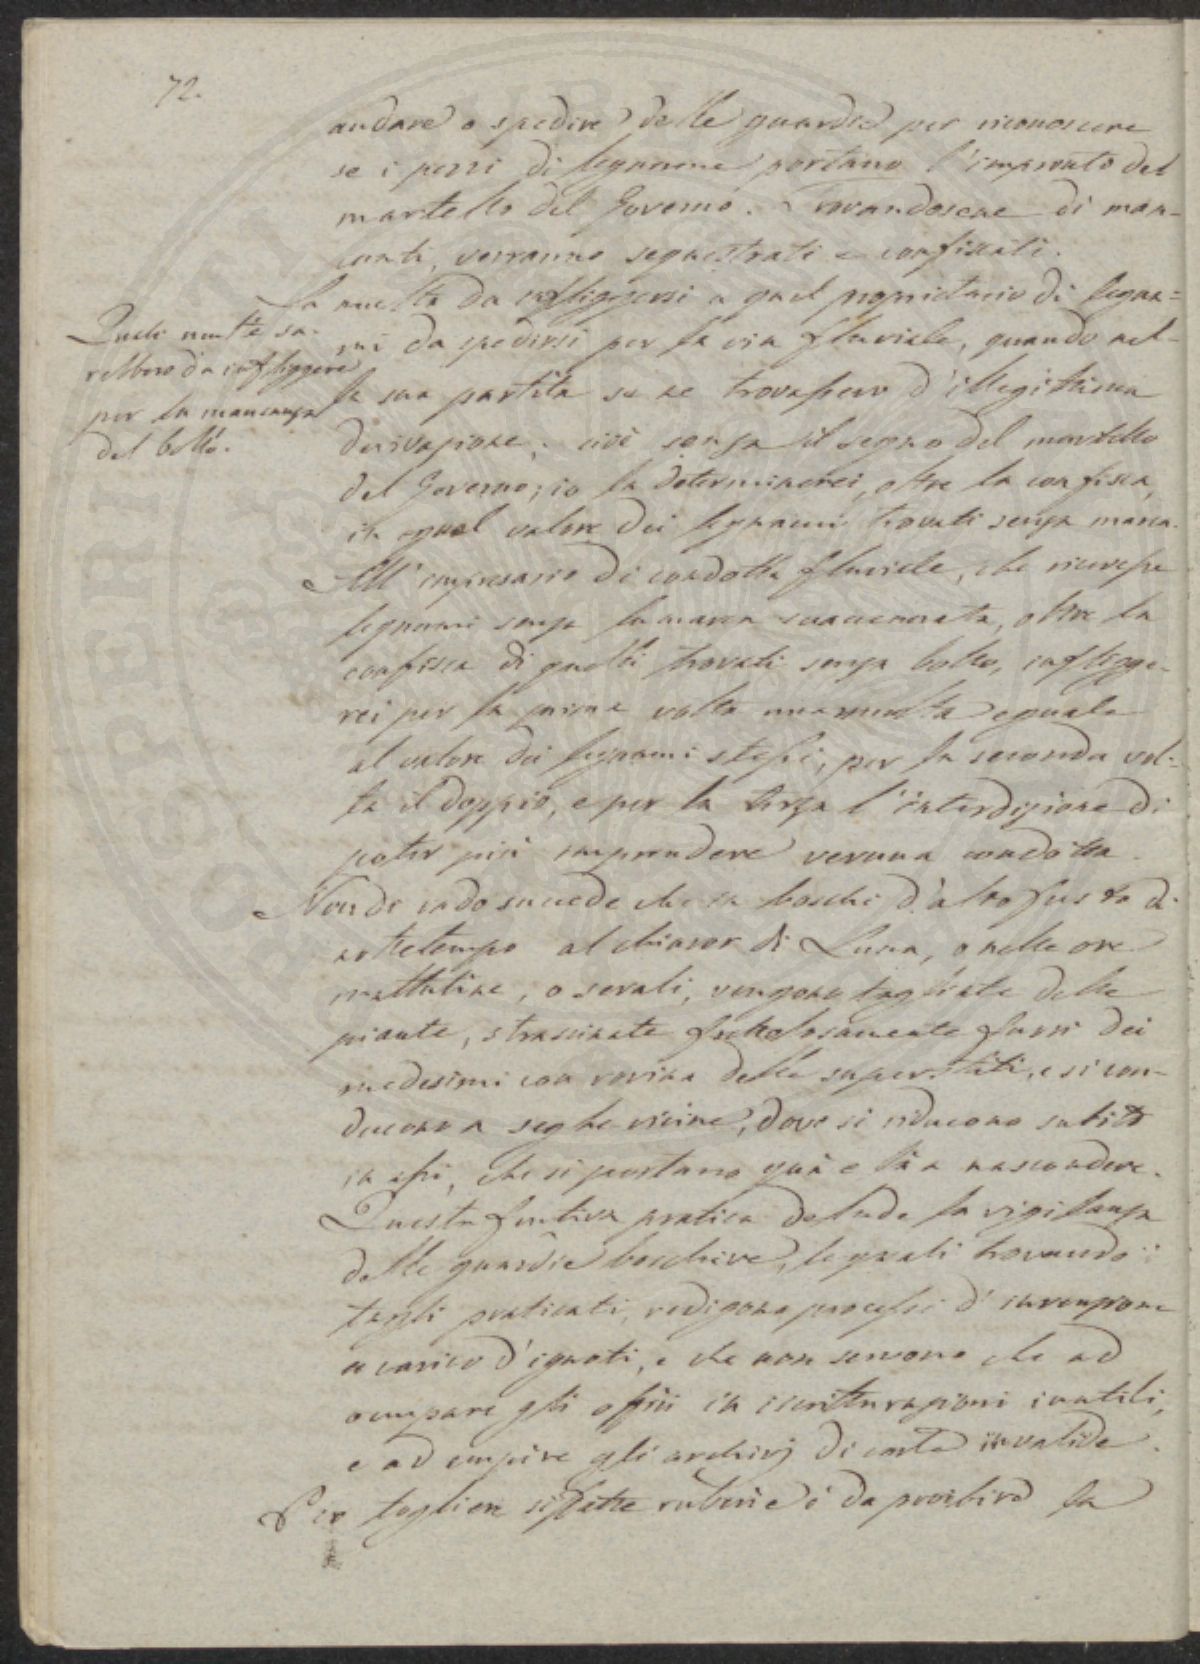 72.
andare o spedire delle guardie per riconoscere
se i pezzi di legname portano l'impronto del
martello del Governo. Trovandosene di man-
canti, verranno sequestrati e confiscati.
La multa da infliggersi a quel proprietario di legna=
mi da spedirsi per la via fluviale, quando nel-
la sua partita se ne trovassero d'illegittima
derivazione, cioè senza il segno del martello
del Governo; io la determinerei, oltre la confisca,
in egual valore dei legnami trovati senza marca.
Quali multe sa-
rebbero da infliggere
per la mancanza
del bollo.
All'impresario di condotta fluviale, che ricevesse
legnami senza la marca suaccennata, oltre la
confisca di quelli trovati senza bollo, infligge-
rei per la prima volta una multa eguale
al valore dei legnami stessi; per la seconda vol-
ta il doppio, e per la terza l'interdizione di
poter più imprendere veruna condotta.
Non di rado succede che in boschi d'alto fusto di
nottetempo al chiaror di Luna, o nelle ore
mattutine, o serali, vengono tagliate delle
piante, strascinate frettolosamente fuori dei
medesimi con rovina delle superstiti, e si con-
ducono a seghe vicine, dove si riducono subito
in assi, che si portano quà e là a nascondere.
Questa furtiva pratica delude la vigilanza
delle guardie boschive, le quali trovando i
tagli praticati, redigono processi d'invenzione
a carico d'ignoti, e che non servono che ad
occupare gli offizii in iscritturazioni inutili,
e ad empire gli archivj di carte invalide.
Per togliere siffatte ruberie è da proibire la